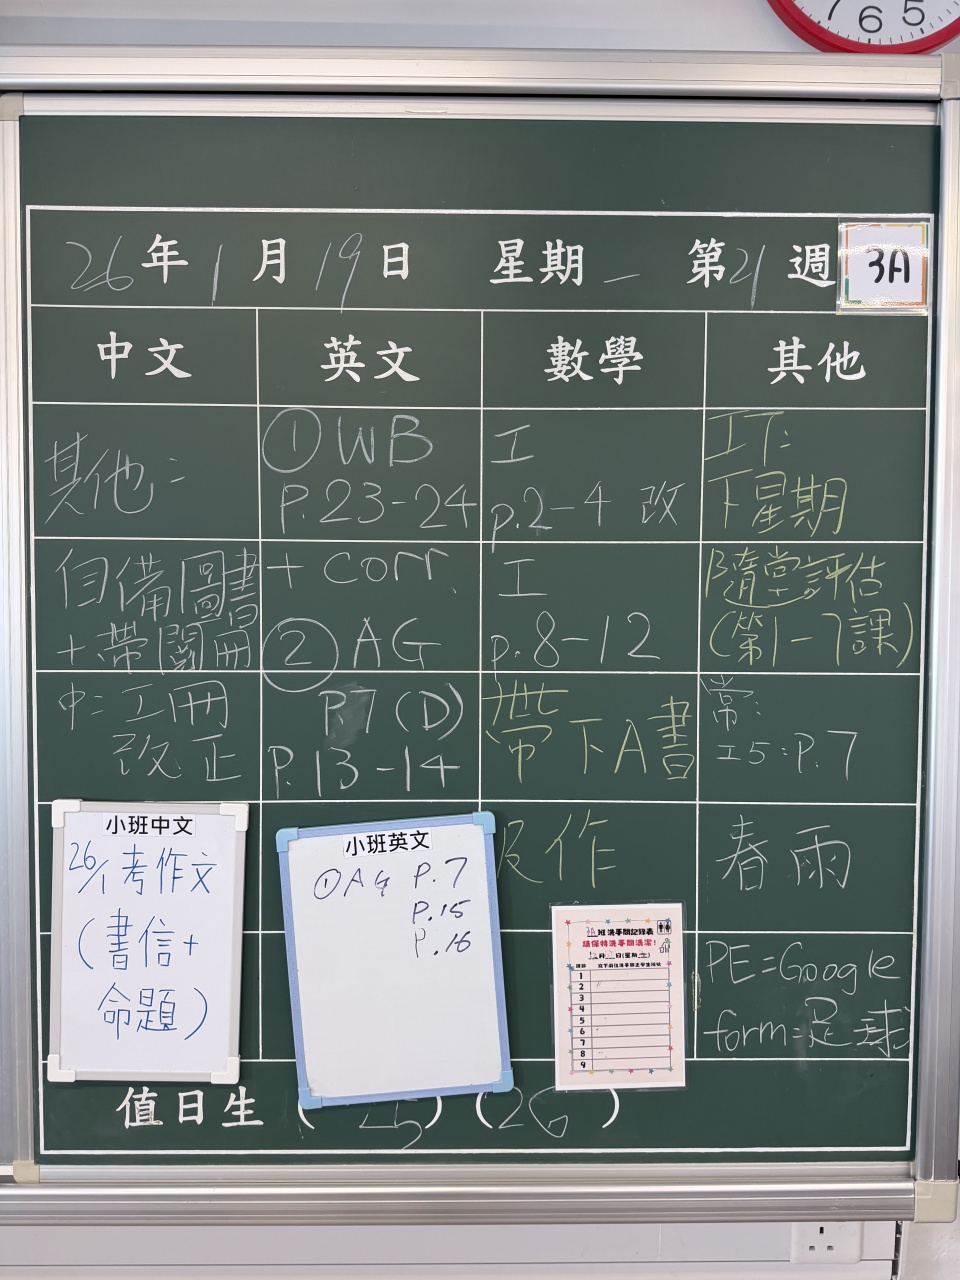 7 6 5
26年1月19日 星期一 第21週 3A
中文 英文 數學 其他
其他:
自備圖書
+帶閱冊
中:工冊
改正
小班中文
26/1考作文
(書信+
命題)
① WB
P.23-24
+ corr.
② AG
P.7 (D)
P.13-14
小班英文
①AG P.7
P.15
P.16
工
p.2-4 改
工
p.8-12
帶下A書
及作
3A班洗手間記錄表
請保持洗手間清潔!
1
2
3
4
5
6
7
8
9
IT:
下星期
隨堂評估
(第1-7課)
常:
工5:P.7
春雨
PE=Google
form=足球
值日生 (25) (26)